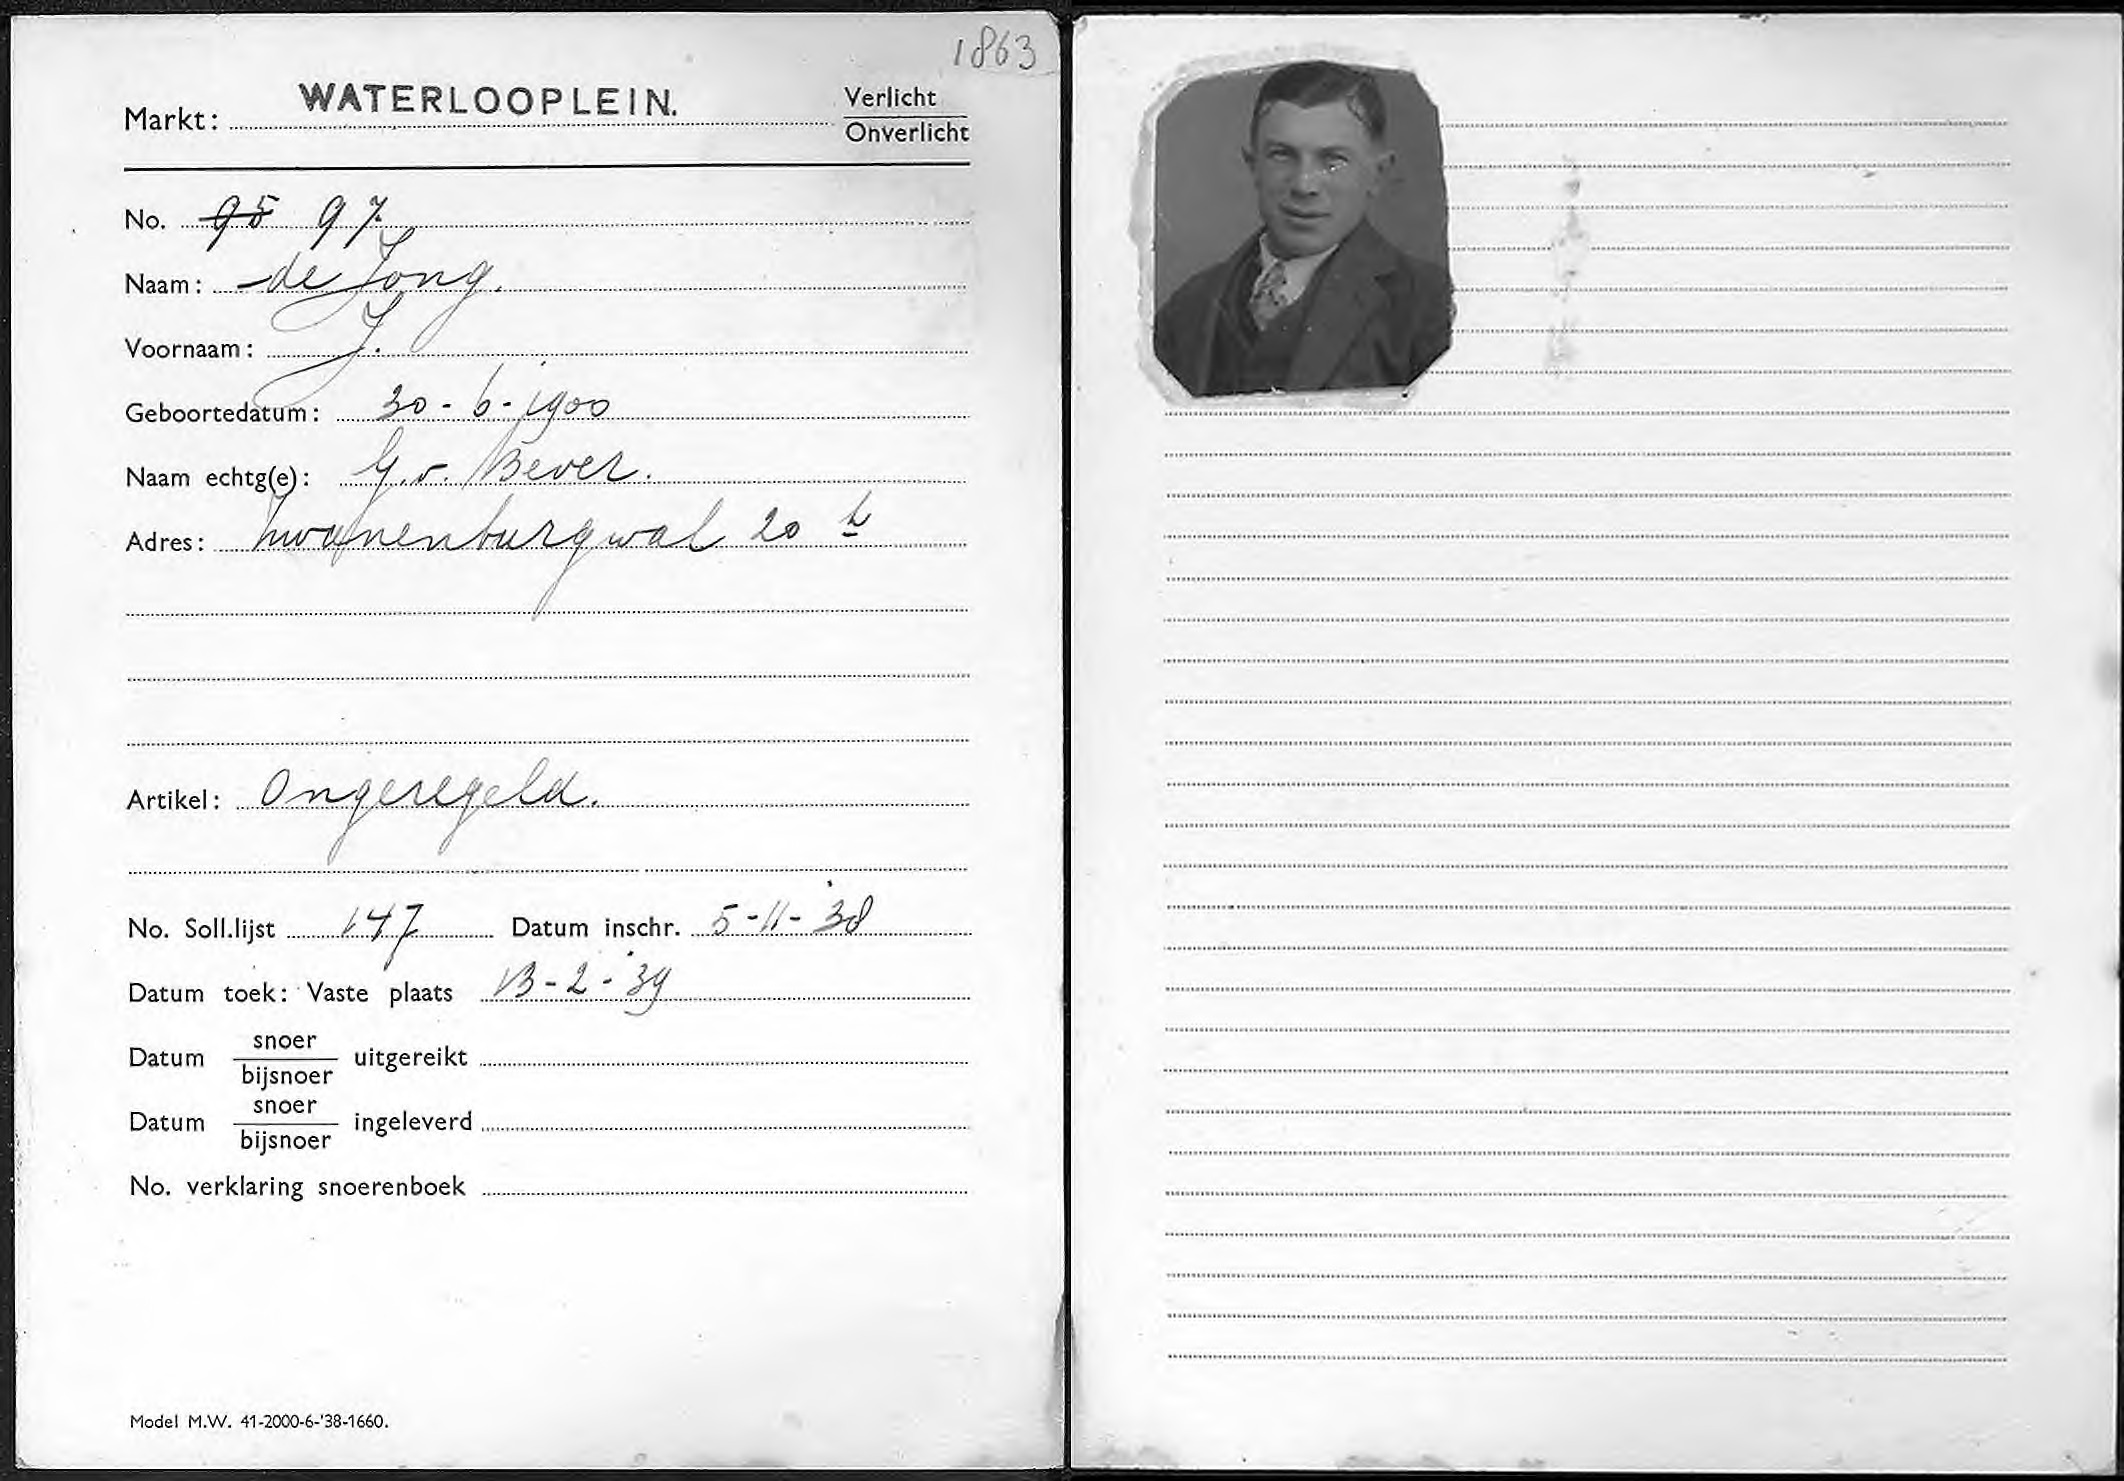 1863
Markt: WATERLOOPLEIN. Verlicht
Onverlicht
No. 95 97
Naam: de Jong.
Voornaam: J.
Geboortedatum: 30-6-1900
Naam echtg(e): G. v. Bever.
Adres: Zwanenburgwal 20 h
Artikel: Ongeregeld.
No. Soll.lijst 147 Datum inschr. 5-11-38
Datum toek: Vaste plaats 13-2-39
Datum snoer
bijsnoer uitgereikt
Datum snoer
bijsnoer ingeleverd
No. verklaring snoerenboek
Model M.W. 41-2000-6-'38-1660.